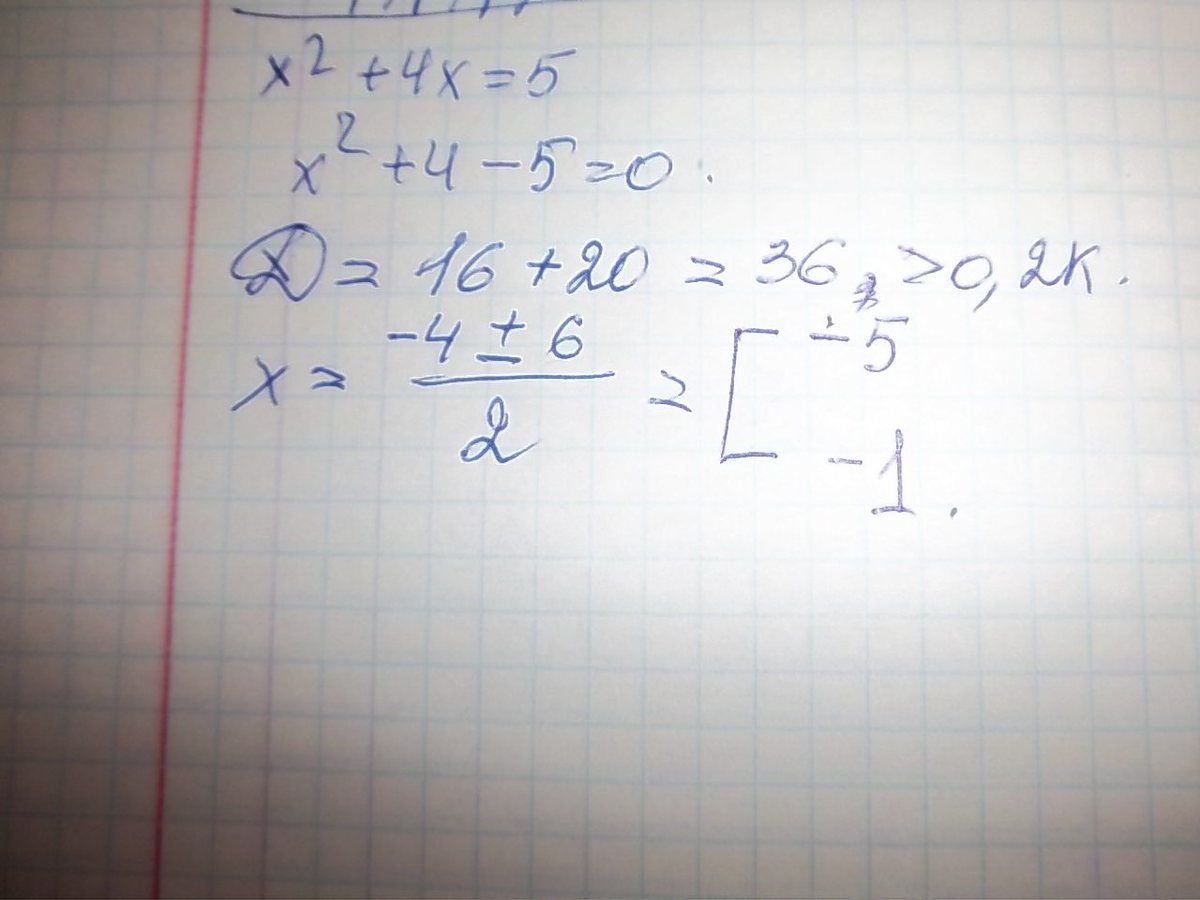 x² + 4x = 5
x² + 4 - 5 = 0.
D = 16 + 20 = 36, > 0, 2K.
x = (-4 ± 6) / 2 = [ -5
-1.